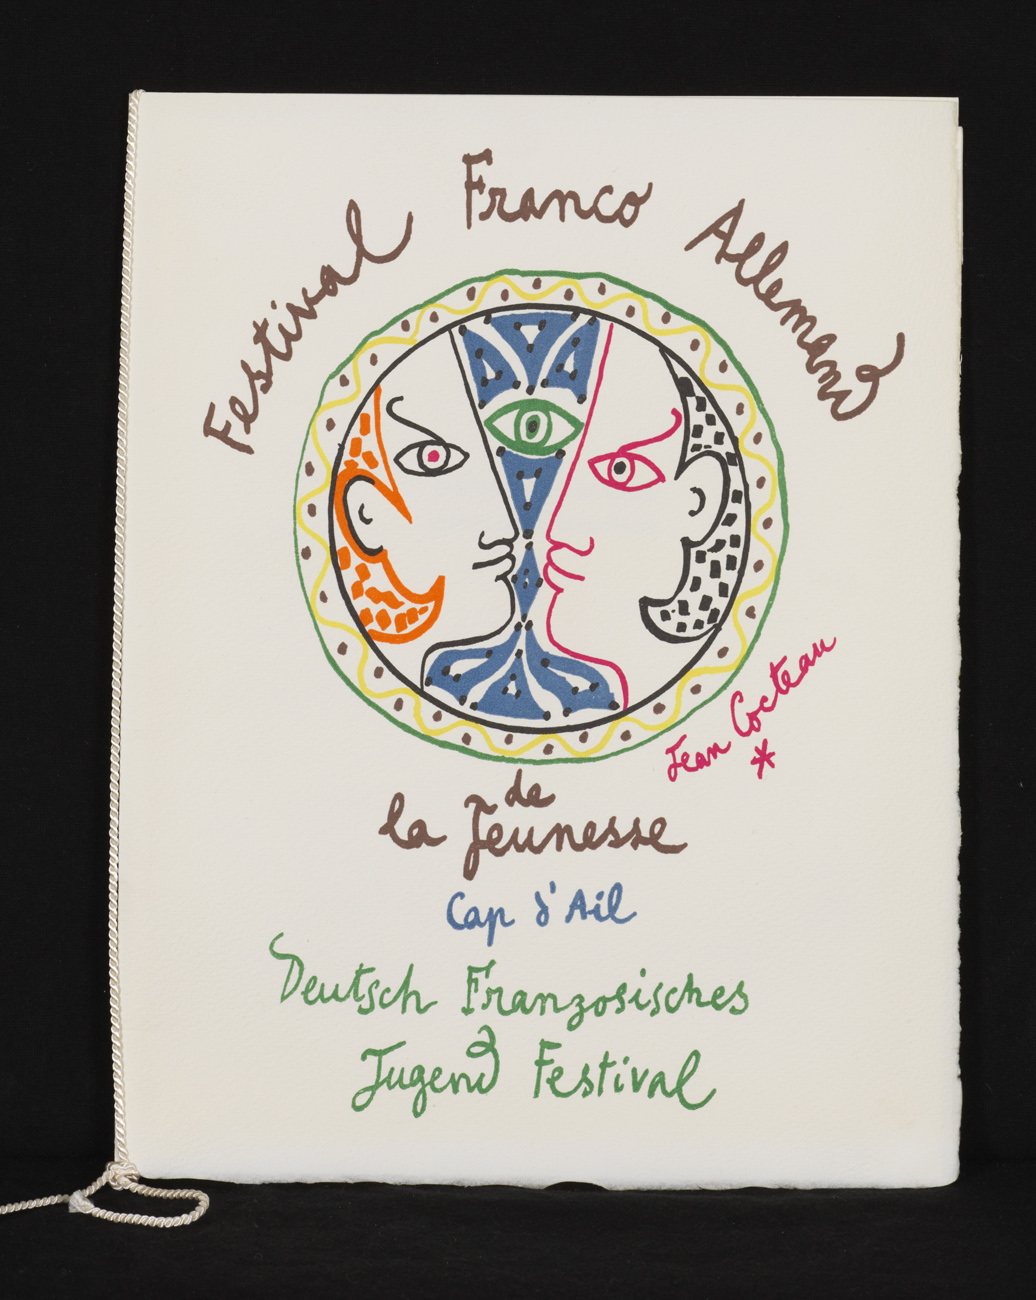 Festival Franco Allemand
Jean Cocteau
*
de
la Jeunesse
Cap d'Ail
Deutsch Franzosisches
Jugend Festival